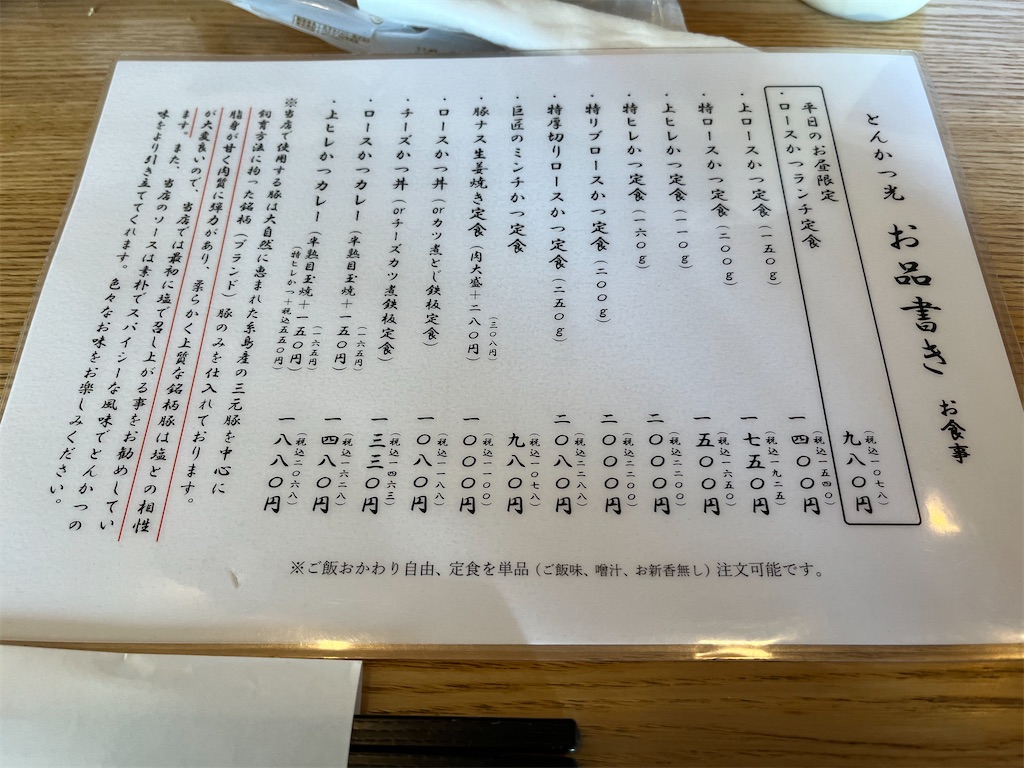 とんかつ光 お品書き お食事
平日のお昼限定
・ロースかつランチ定食 九八〇円(税込一〇七八)
・上ロースかつ定食(一五〇g) 一四〇〇円(税込一五四〇)
・特ロースかつ定食(二〇〇g) 一七五〇円(税込一九二五)
・上ヒレかつ定食(一一〇g) 一五〇〇円(税込一六五〇)
・特ヒレかつ定食(一六〇g) 二〇〇〇円(税込二二〇〇)
・特リブロースかつ定食(二〇〇g) 二〇〇〇円(税込二二〇〇)
・特厚切りロースかつ定食(二五〇g) 二〇八〇円(税込二二八八)
・巨匠のミンチかつ定食 九八〇円(税込一〇七八)
・豚ナス生姜焼き定食(肉大盛+二八〇円)(三〇八円) 一〇〇〇円(税込一一〇〇)
・ロースかつ丼(orカツ煮とじ鉄板定食) 一〇八〇円(税込一一八八)
・チーズかつ丼(orチーズカツ煮鉄板定食) 一三三〇円(税込一四六三)
・ロースかつカレー(半熟目玉焼+一五〇円)(一六五円) 一四八〇円(税込一六二八)
・上ヒレかつカレー(半熟目玉焼+一五〇円)(一六五円)(特ヒレかつ+税込五五〇円) 一八八〇円(税込二〇六八)
※当店で使用する豚は大自然に恵まれた糸島産の三元豚を中心に
飼育方法に拘った銘柄(ブランド)豚のみを仕入れております。
脂身が甘く肉質に弾力があり、柔らかく上質な銘柄豚は塩との相性
が大変良いので、当店では最初に塩で召し上がる事をお勧めしてい
ます。また、当店のソースは素朴でスパイシーな風味でとんかつの
味をより引き立ててくれます。色々なお味をお楽しみください。
※ご飯おかわり自由、定食を単品(ご飯味、噌汁、お新香無し)注文可能です。